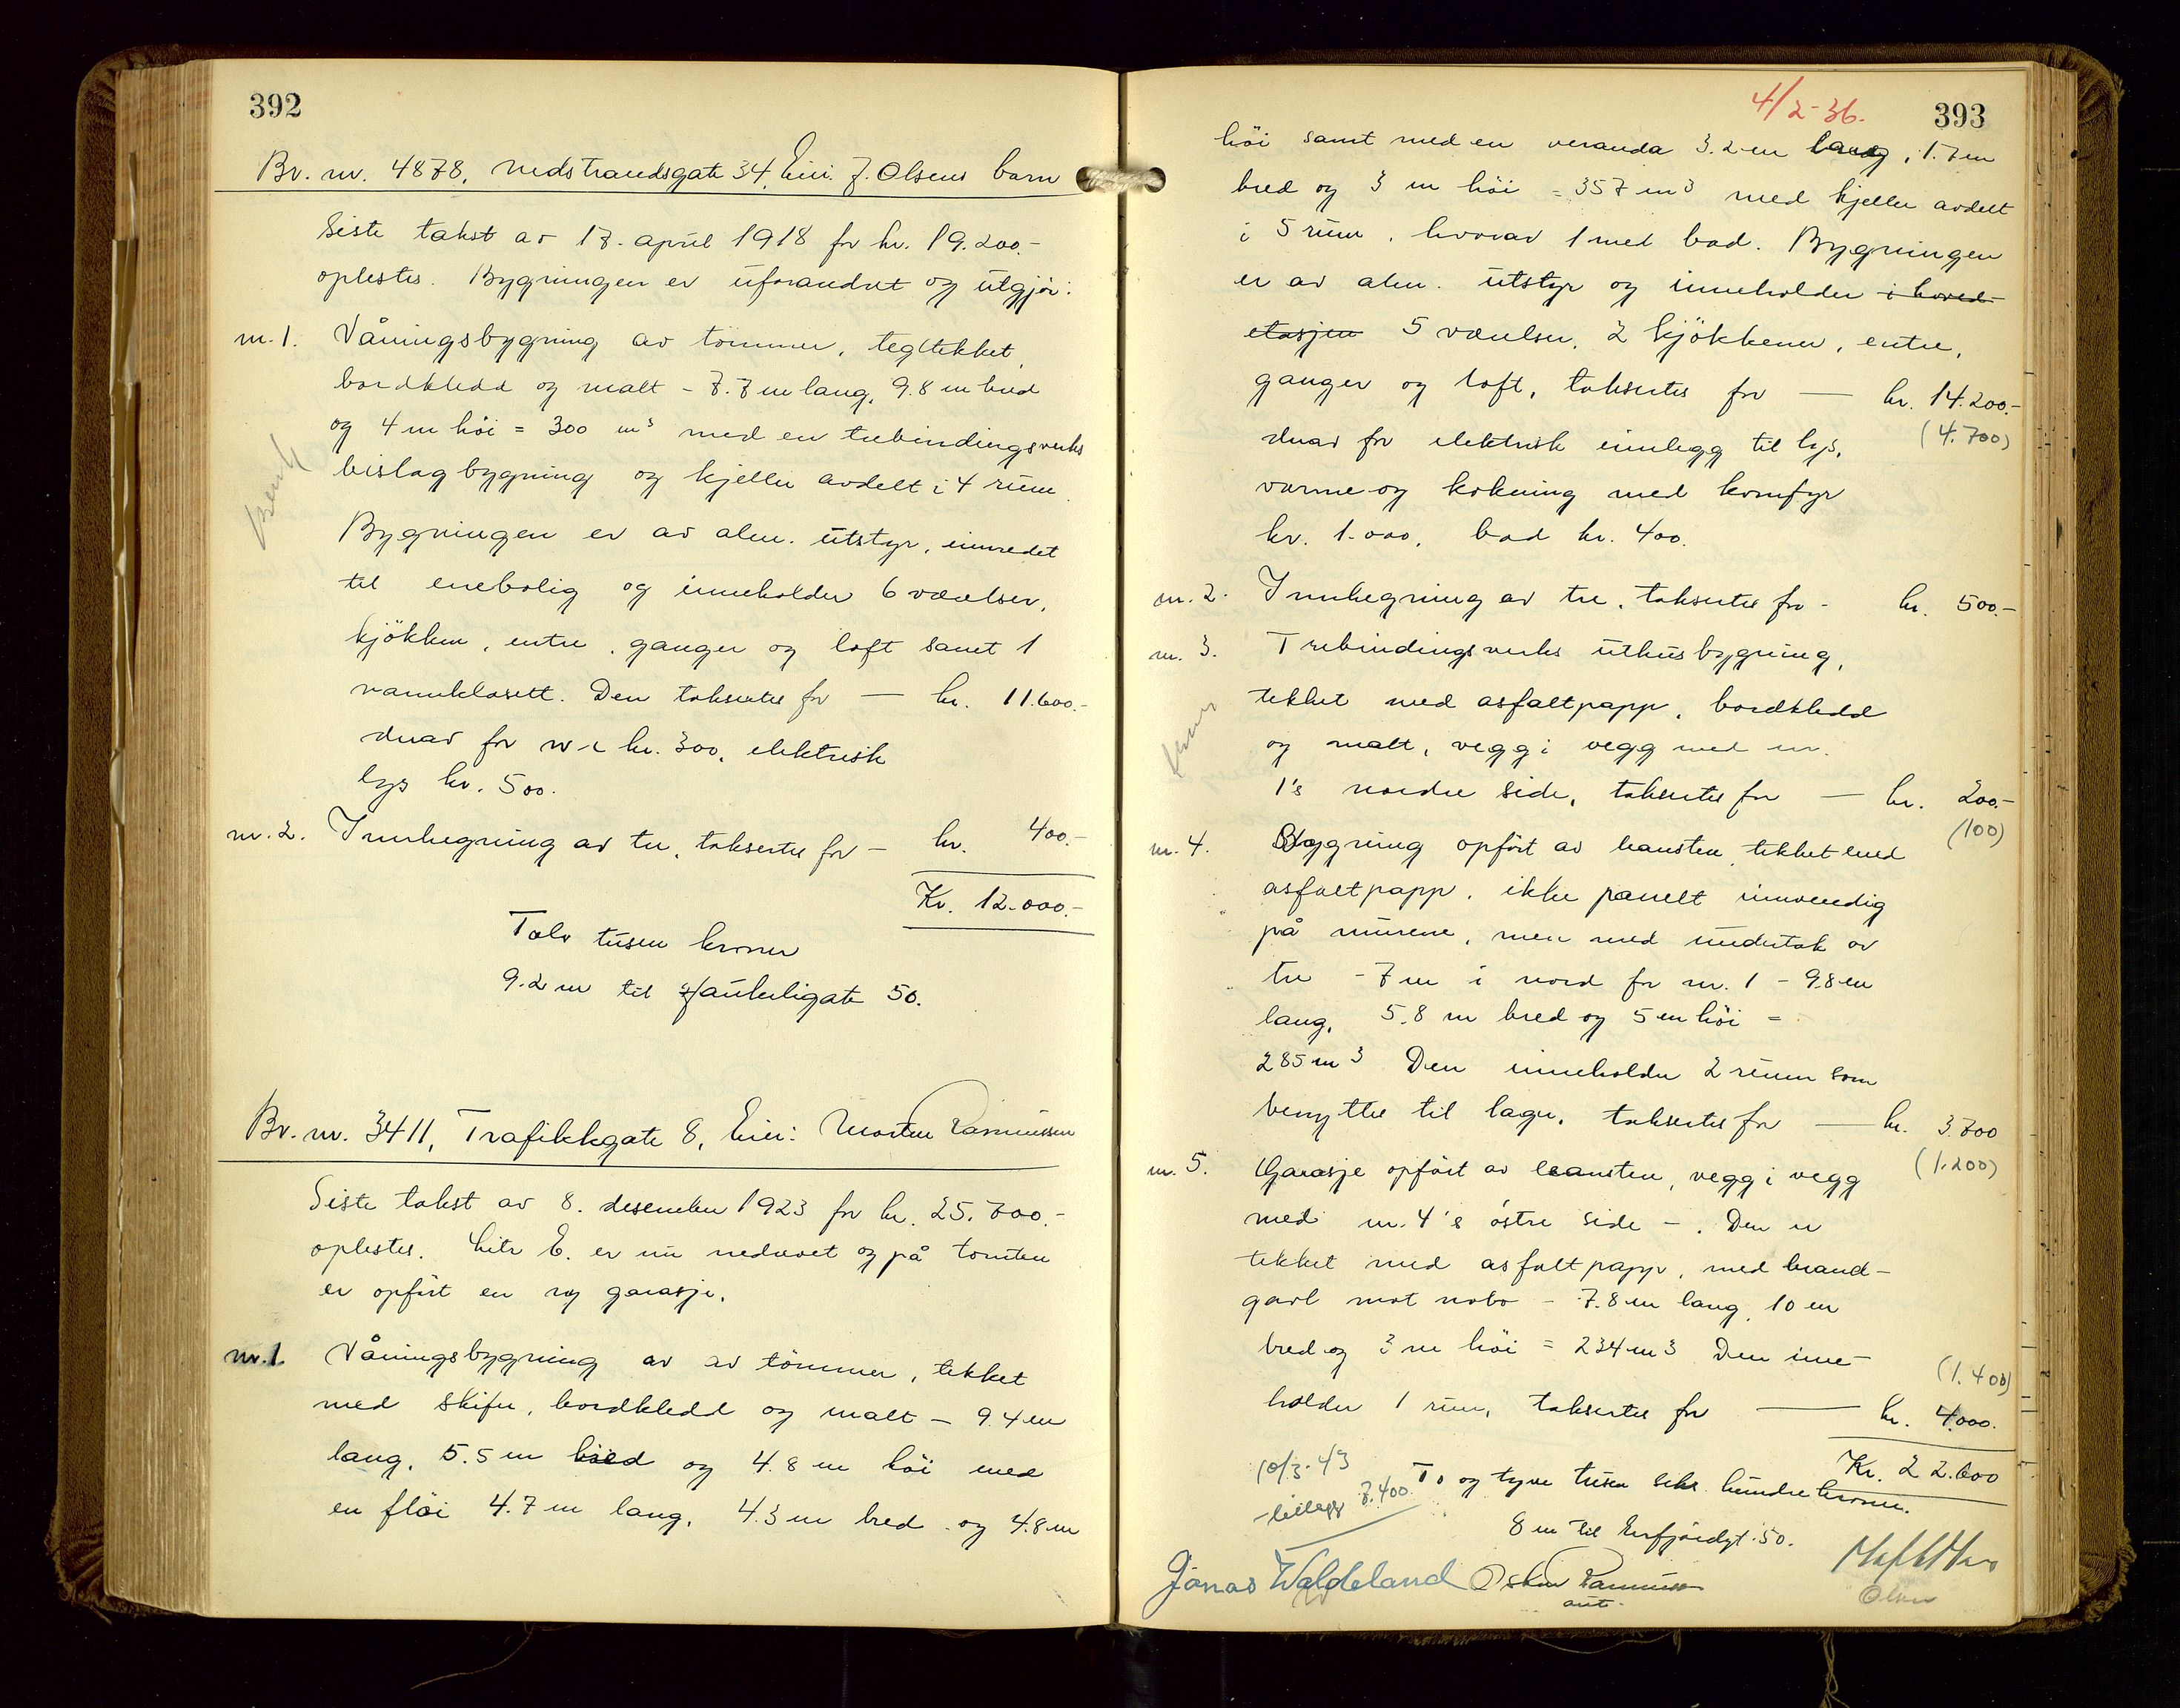 392
Br. nr. 4878, Nedstrandsgate 34, Eier: J. Olsens barn
Siste takst av 17. april 1918 for kr. 19.200.-
oplestes. Bygningen er uforandret og utgjør:
nr. 1. Våningsbygning av tømmer, tegltekket,
bordkledd og malt - 7.7 m lang, 9.8 m bred
og 4 m høi = 300 m³ med en trebindingsverks
bislagbygning og kjeller avdelt i 4 rum.
Bygningen er av alm. utstyr, innredet
til enebolig og inneholder 6 værelser,
kjøkken, entre, ganger og loft samt 1
vannklosett. Den takseres for — kr. 11.600.-
derav for w c kr. 300, elektrisk
lys kr. 500.
nr. 2. Innhegning av tre, takseres for - kr. 400.-
Kr. 12.000.-
Tolv tusen kroner
9.2 m til Haukeligate 50.
Br. nr. 3411, Trafikkgate 8, Eier: Morten Rasmussen
Siste takst av 8. desember 1923 for kr. 25.700.-
oplestes. Litr E. er nu nedrevet og på tomten
er opført en ny garasje.
nr. 1. Våningsbygning av av tømmer, tekket
med skifer, bordkledd og malt - 9.4 m
lang, 5.5 m bred og 4.8 m høi med
en fløi 4.7 m lang, 4.3 m bred og 4.8 m
4/2-36.
393
høi samt med en veranda 3.2 m lang, 1.7 m
bred og 3 m høi = 357 m³ med kjeller avdelt
i 5 rum, hvorav 1 med bad. Bygningen
er av alm. utstyr og inneholder i hoved-
etasjen 5 værelser, 2 kjøkkener, entre,
ganger og loft, takseres for — kr. 14.200.-
(4.700)
derav for elektrisk innlegg til lys,
varme og kokning med komfyr
kr. 1.000, bad kr. 400.
nr. 2. Innhegning av tre, takseres for - kr. 500.-
nr. 3. Trebindingsverks uthusbygning,
tekket med asfaltpapp, bordkledd
og malt, vegg i vegg med nr.
1's nordre side, takseres for — kr. 200.-
(100)
nr. 4. Bygning opført av leansten, tekket med
asfaltpapp, ikke panelt innvendig
på murene, men med undertak av
tre - 7 m i nord for nr. 1 - 9.8 m
lang, 5.8 m bred og 5 m høi =
285 m³ Den inneholder 2 rum som
benyttes til lager, takseres for — kr. 3.700
(1.200)
nr. 5. Garasje opført av leansten, vegg i vegg
med nr. 4's østre side - . Den er
tekket med asfaltpapp, med brand-
gavl mot nabo - 7.8 m lang, 10 m
bred og 3 m høi = 234 m³ Den inne-
(1.400)
holder 1 rum, takseres for — kr. 4.000.
Kr. 22.600
To og tyve tusen seks hundre kroner.
10/3-43
-tillegg 7.400
8 m til Erfjordgt. 50.
Jonas Waldeland Oskar Rasmussen
Olsen